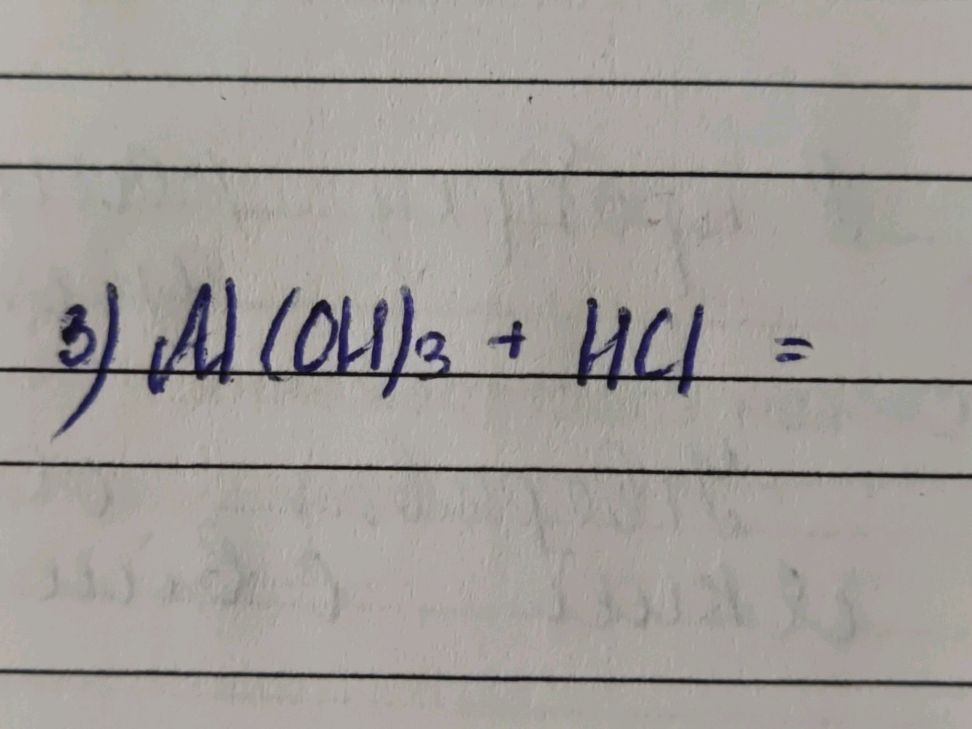 3) Al(OH)3 + HCl =